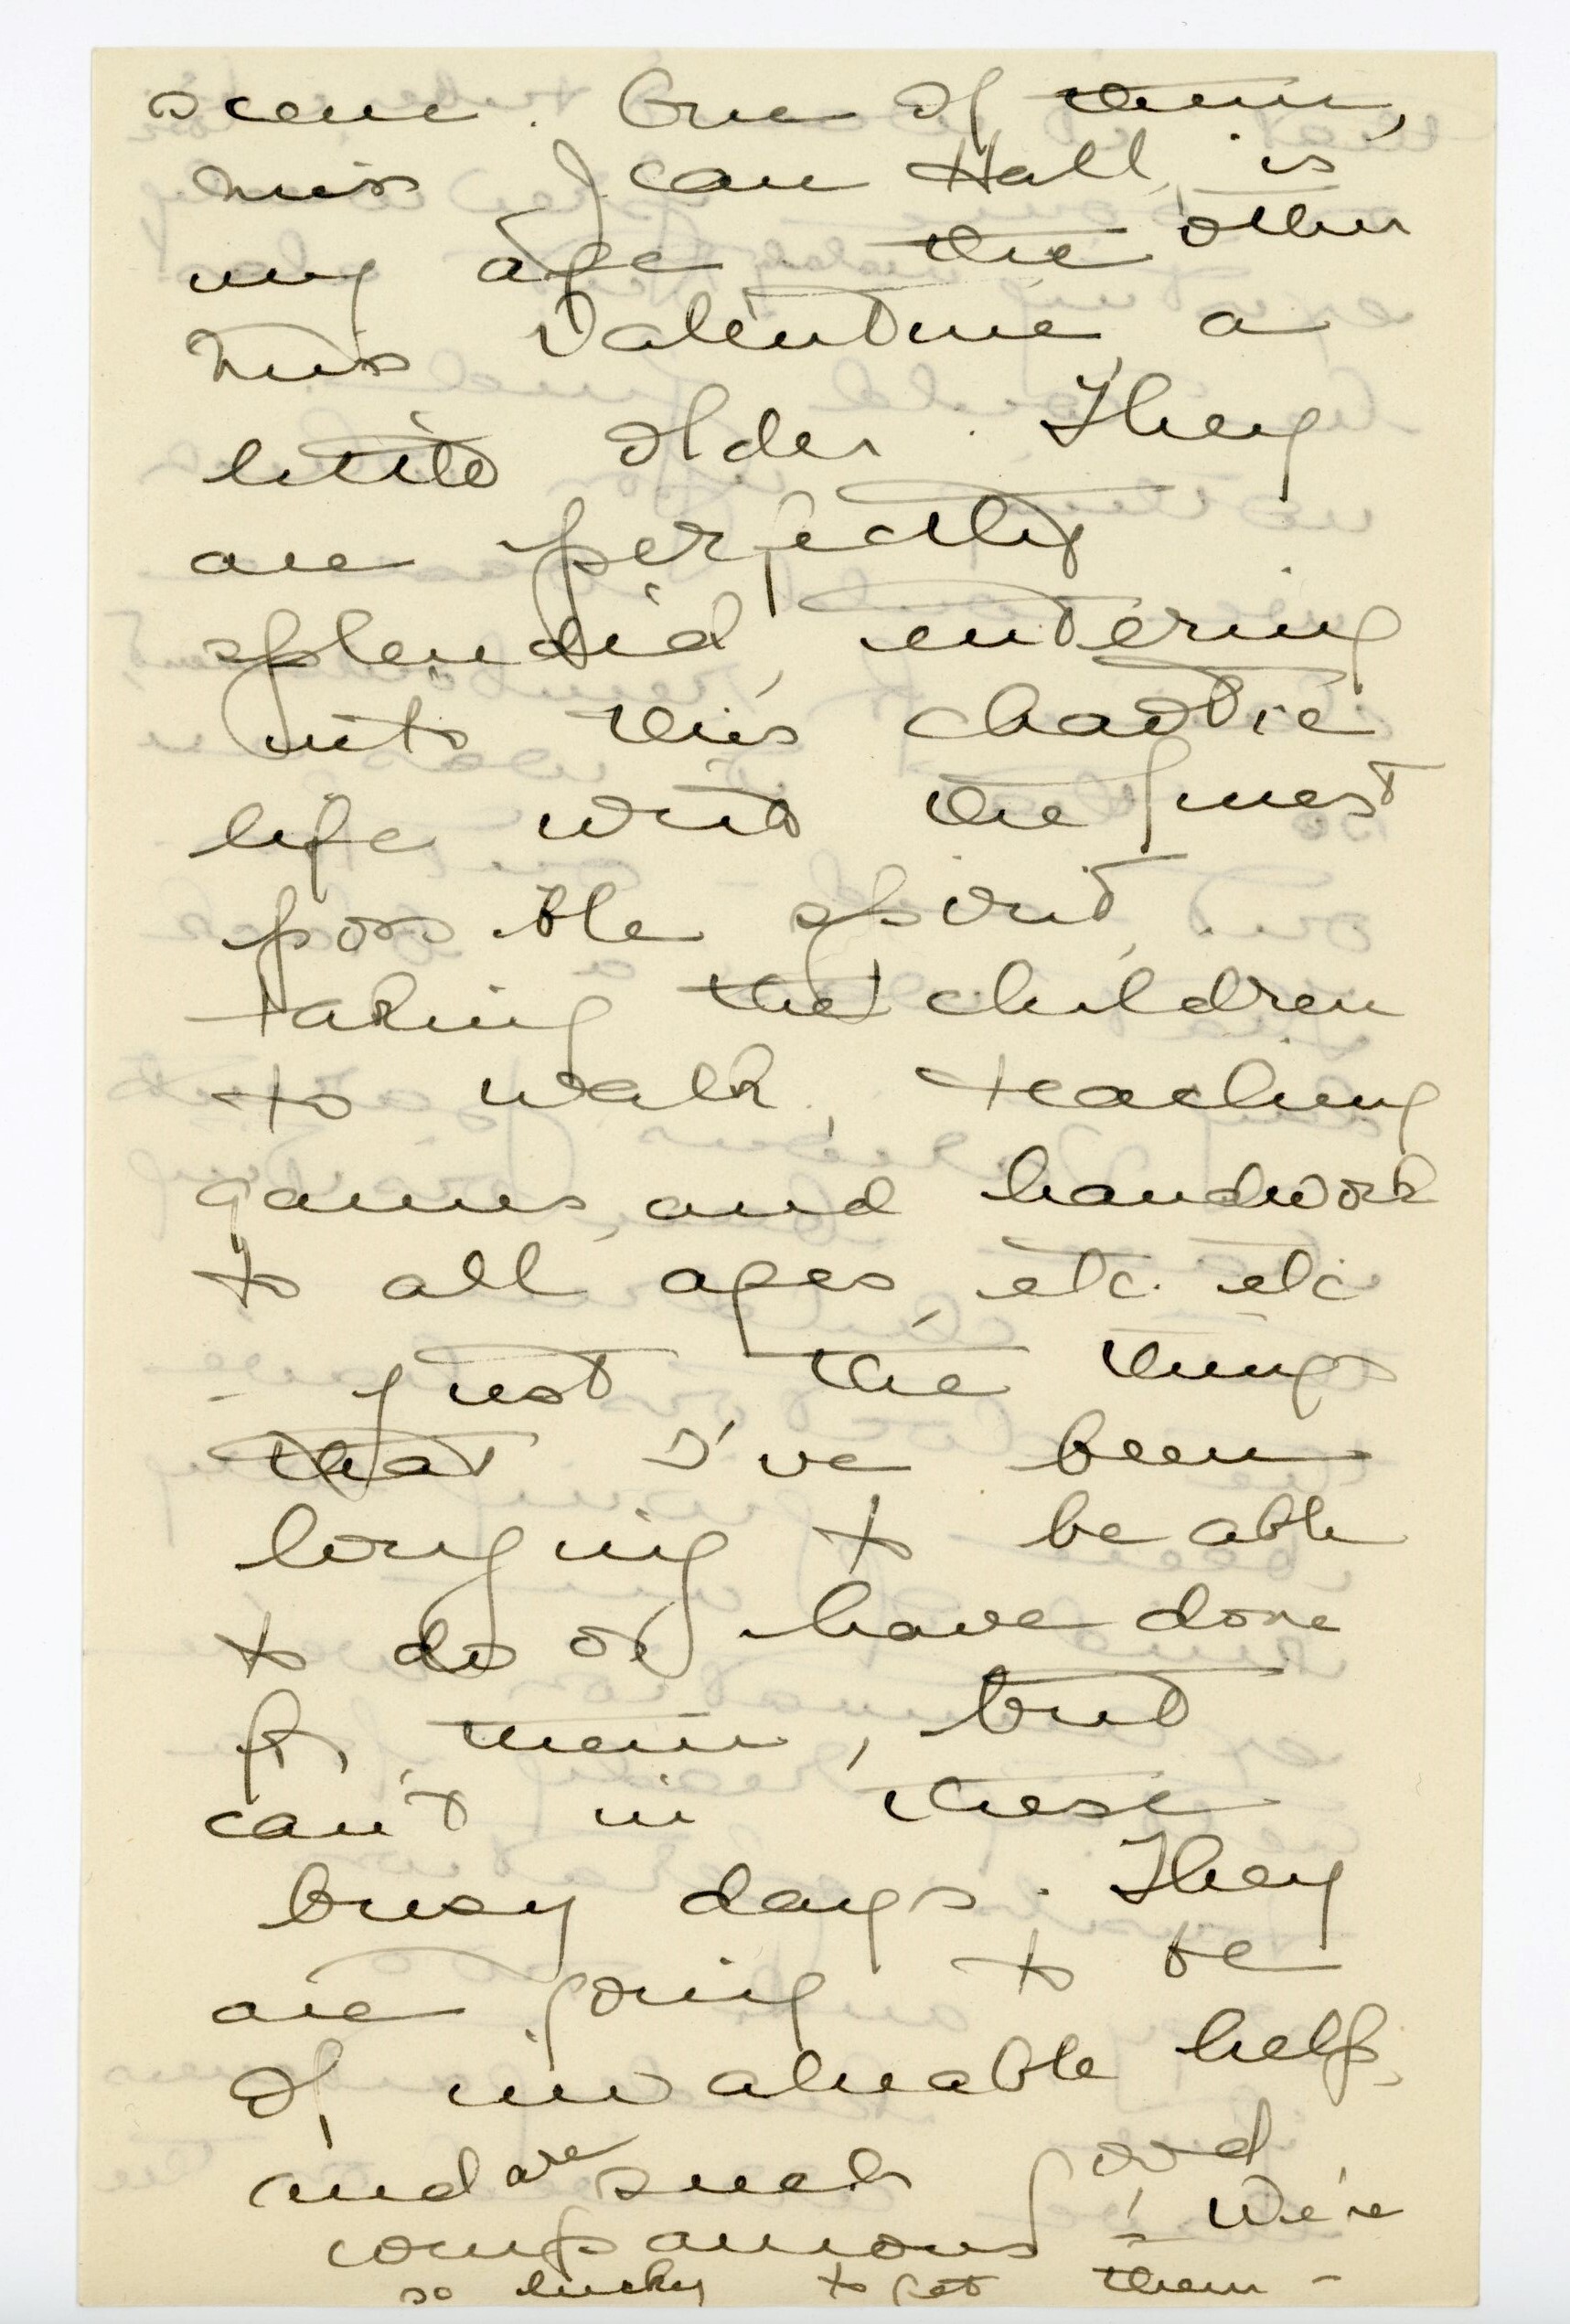 scene. One of them,
Miss Jean Hall, is
my age the other
Miss Valentine, a
little older. They
are perfectly
splendid, entering
into this chaotic
life with the finest
possible spirit,
taking the children
to walk, teaching
games, and handwork
to all ages, etc. etc
just the things
that I've been
longing to be able
to do or have done
for them, but
can't in these
busy days. They
are going to be
of invaluable help,
and are such good
companions! We're
so lucky to get them –